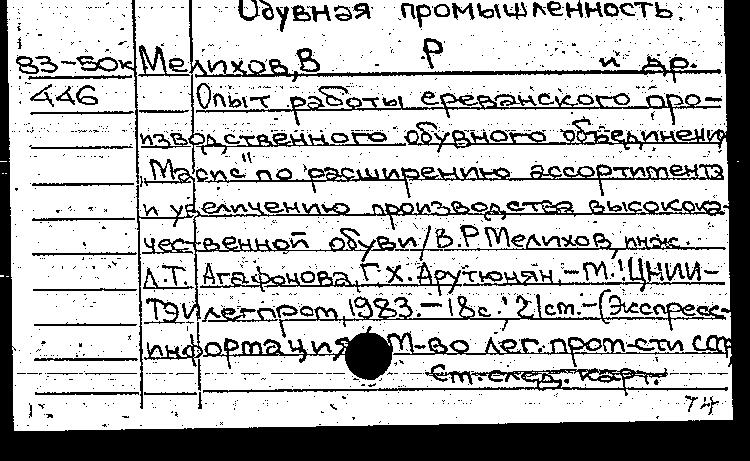 Обувная промышленность.
83-50к Мелихов, В. Р. и др.
446 Опыт работы ереванского про-
изводственного обувного объединения
"Масис" по расширению ассортимента
и увеличению производства высокока-
чественной обуви/В.Р.Мелихов, инж.
Л.Т. Агафонова, Г.Х. Арутюнян.-М.: ЦНИИ-
ТЭИлегпром, 1983.-18с.; 21см.-(Экспресс-
информация/М-во лег.пром-сти СССР
См.след. карт.